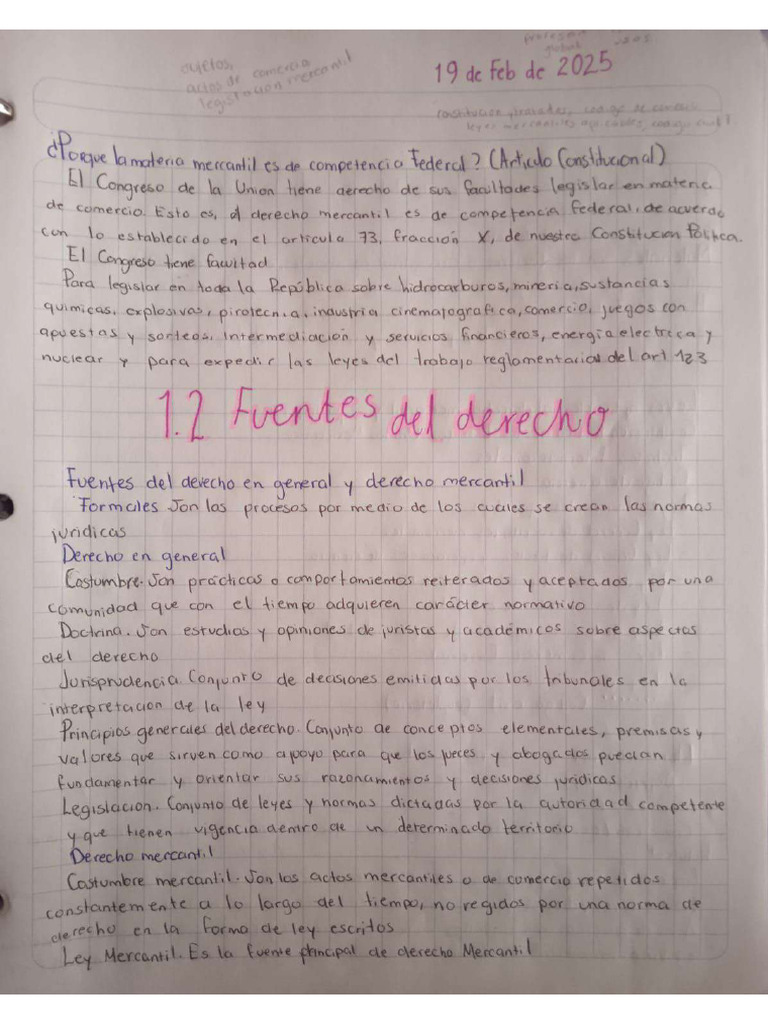 sujetos,
actos de comercio
legislación mercantil
global
19 de Feb de 2025
¿Porque la materia mercantil es de competencia Federal? (Articulo Constitucional)
El Congreso de la Union tiene derecho de sus facultades legislar en materia
de comercio. Esto es, el derecho mercantil es de competencia federal, de acuerdo
con lo establecido en el articulo 73, fracción X, de nuestra Constitución Política.
El Congreso tiene facultad
Para legislar en toda la República sobre hidrocarburos, mineria, sustancias
químicas, explosivas, pirotecnia, industria cinematografica, comercio, juegos con
apuestas y sorteos, Intermediación y servicios financieros, energía electrica y
nuclear y para expedir las leyes del trabajo reglamentarias del art 123
1.2 Fuentes del derecho
Fuentes del derecho en general y derecho mercantil
Formales Son los procesos por medio de los cuales se crean las normas
juridicas
Derecho en general
Costumbre. Son prácticas o comportamientos reiterados y aceptados por una
comunidad que con el tiempo adquieren carácter normativo
Doctrina. Son estudios y opiniones de juristas y académicos sobre aspectos
del derecho
Jurisprudencia. Conjunto de decisiones emitidas por los tribunales en la
interpretacion de la ley
Principios generales del derecho. Conjunto de conceptos elementales, premisas y
valores que sirven como apoyo para que los jueces y abogados puedan
fundamentar y orientar sus razonamientos y decisiones jurídicas
Legislacion. Conjunto de leyes y normas dictadas por la autoridad competente
y que tienen vigencia dentro de un determinado territorio
Derecho mercantil
Costumbre mercantil. Son los actos mercantiles o de comercio repetidos
constantemente a lo largo del tiempo, no regidos por una norma de
derecho en la forma de ley escritos
Ley Mercantil. Es la fuente principal de derecho Mercantil